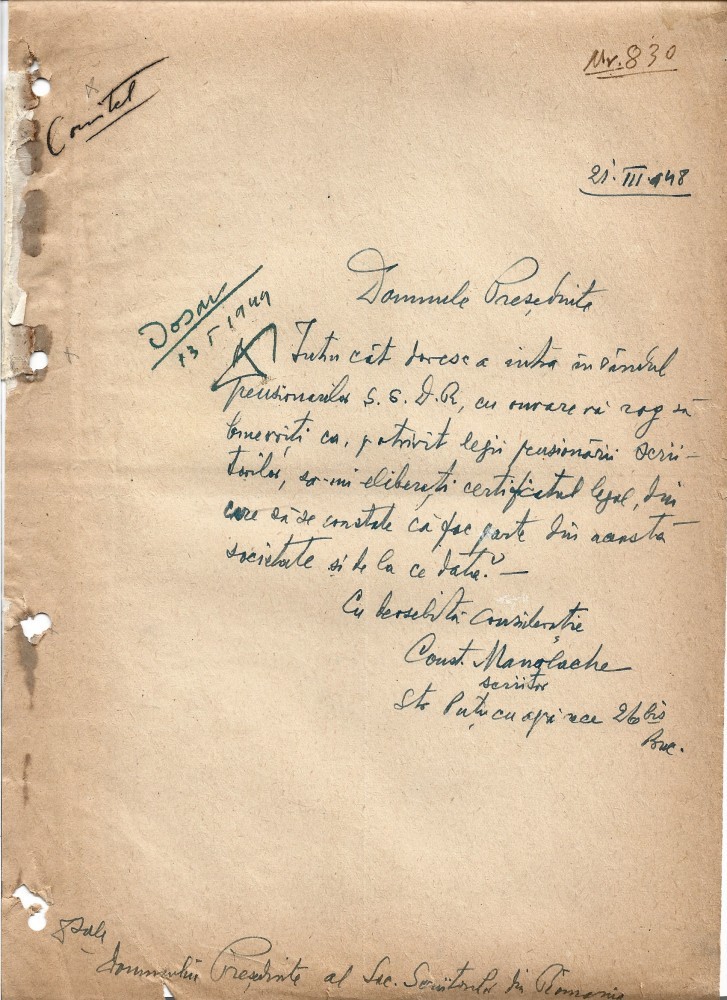 Nr. 830
Comitet
21.III.948
Domnule Președinte
Dosar
13 I 1949
Întru cât doresc a intra în rândul
pensionarilor S.S.D.R, cu onoare vă rog să
binevoiți ca, potrivit legii pensionării scrii-
torilor, să-mi eliberați certificatul legal, din
care să se constate că fac parte din această
societate și de la ce dată. —
Cu deosebită considerație
Const. Manolache
scriitor
Str Puțu cu apă rece 26 bis
Buc.
Domnului Președinte al Soc. Scriitorilor din România